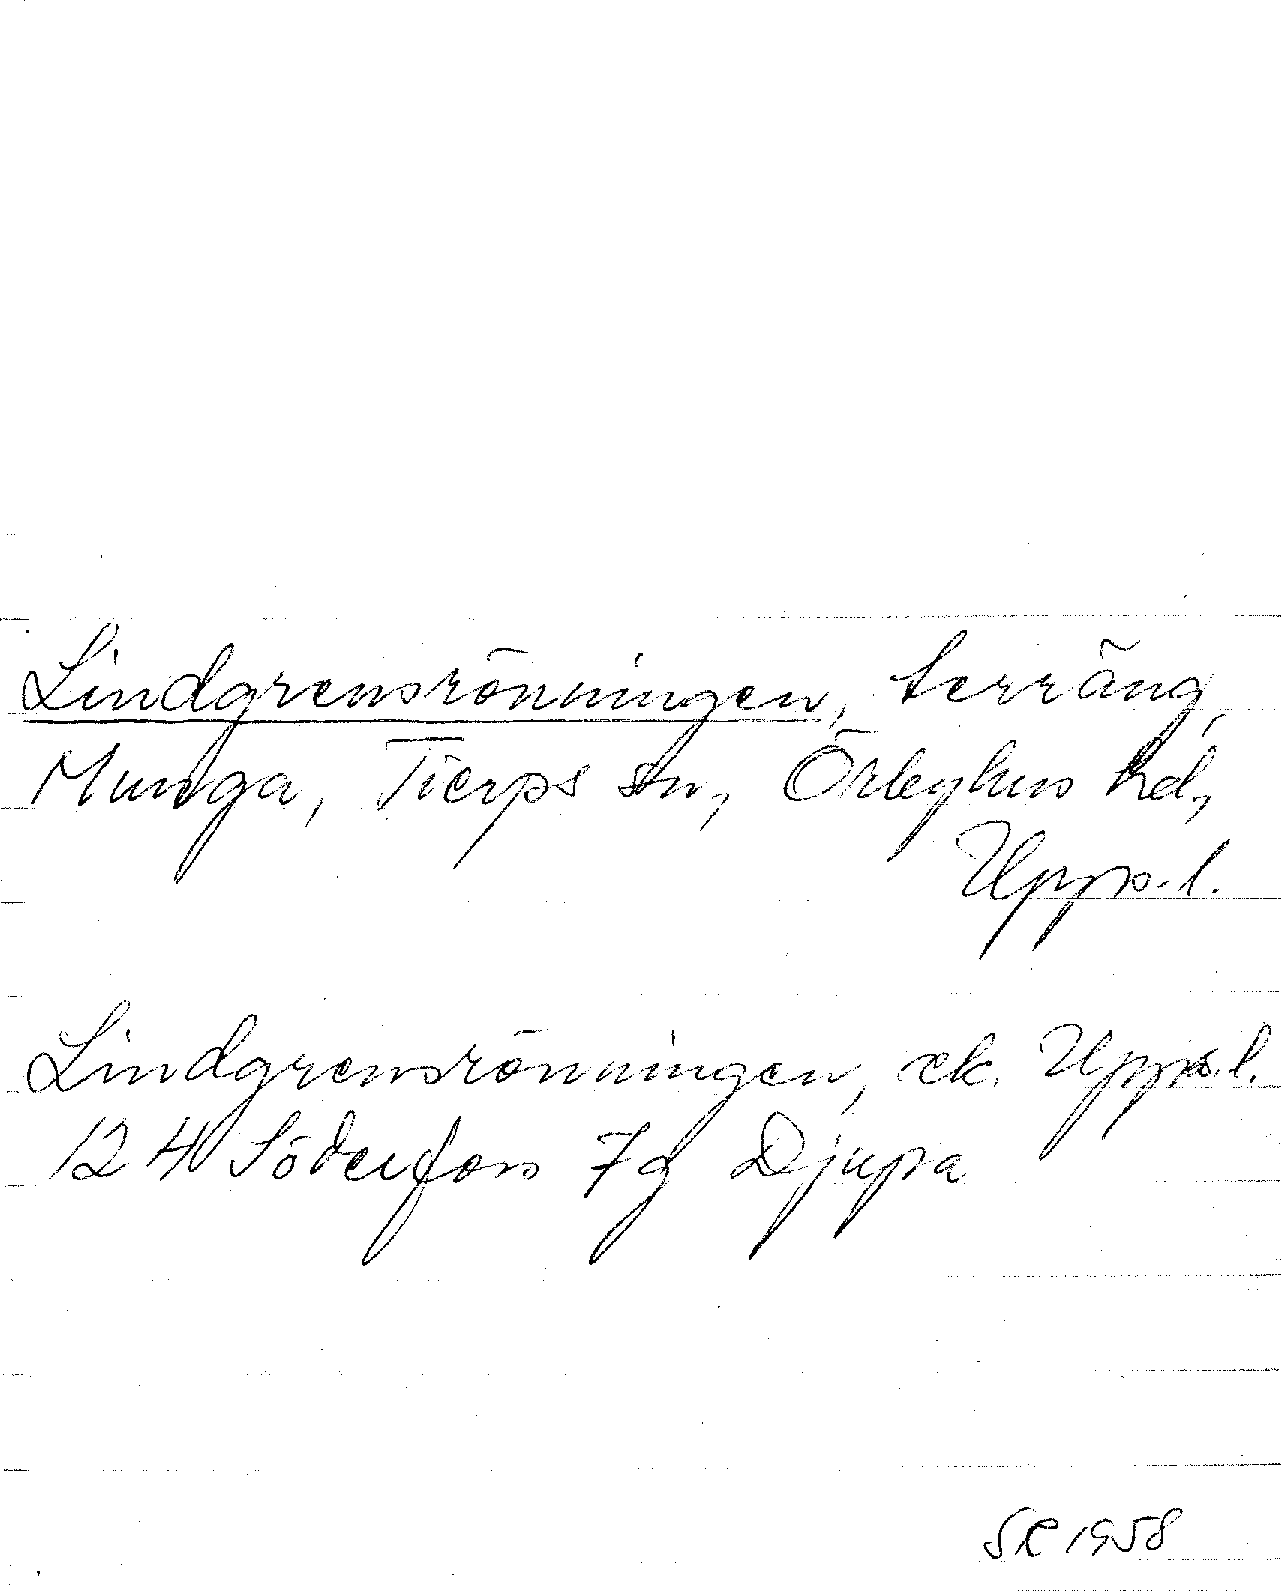 Lindgrensrönningen, terräng,
Munga, Tierps sn, Örbyhus hd,
Upps.l.
Lindgrensrönningen, ek. Upps.l.
12 4 Söderfors 7g Djupa
SR 1958